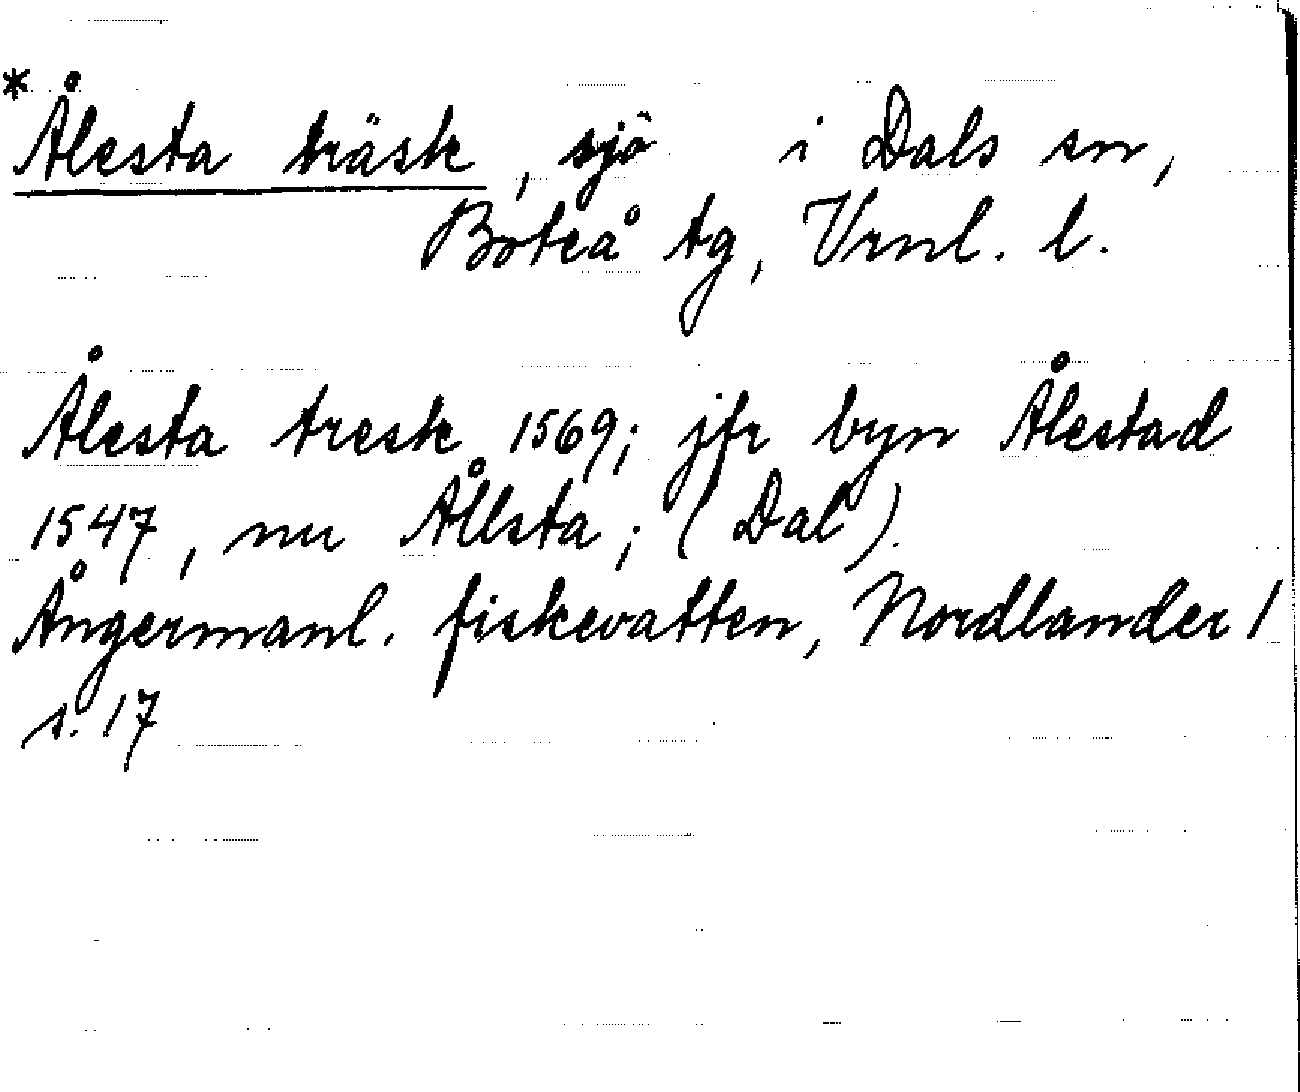 *Ålesta träsk, sjö i Dals sn,
Boteå tg, Vrnl. l.
Ålesta tresk 1569; jfr byn Ålestad
1547, nu Ållsta; (Dal).
Ångermanl. fiskevatten, Nordlander 1
s. 17